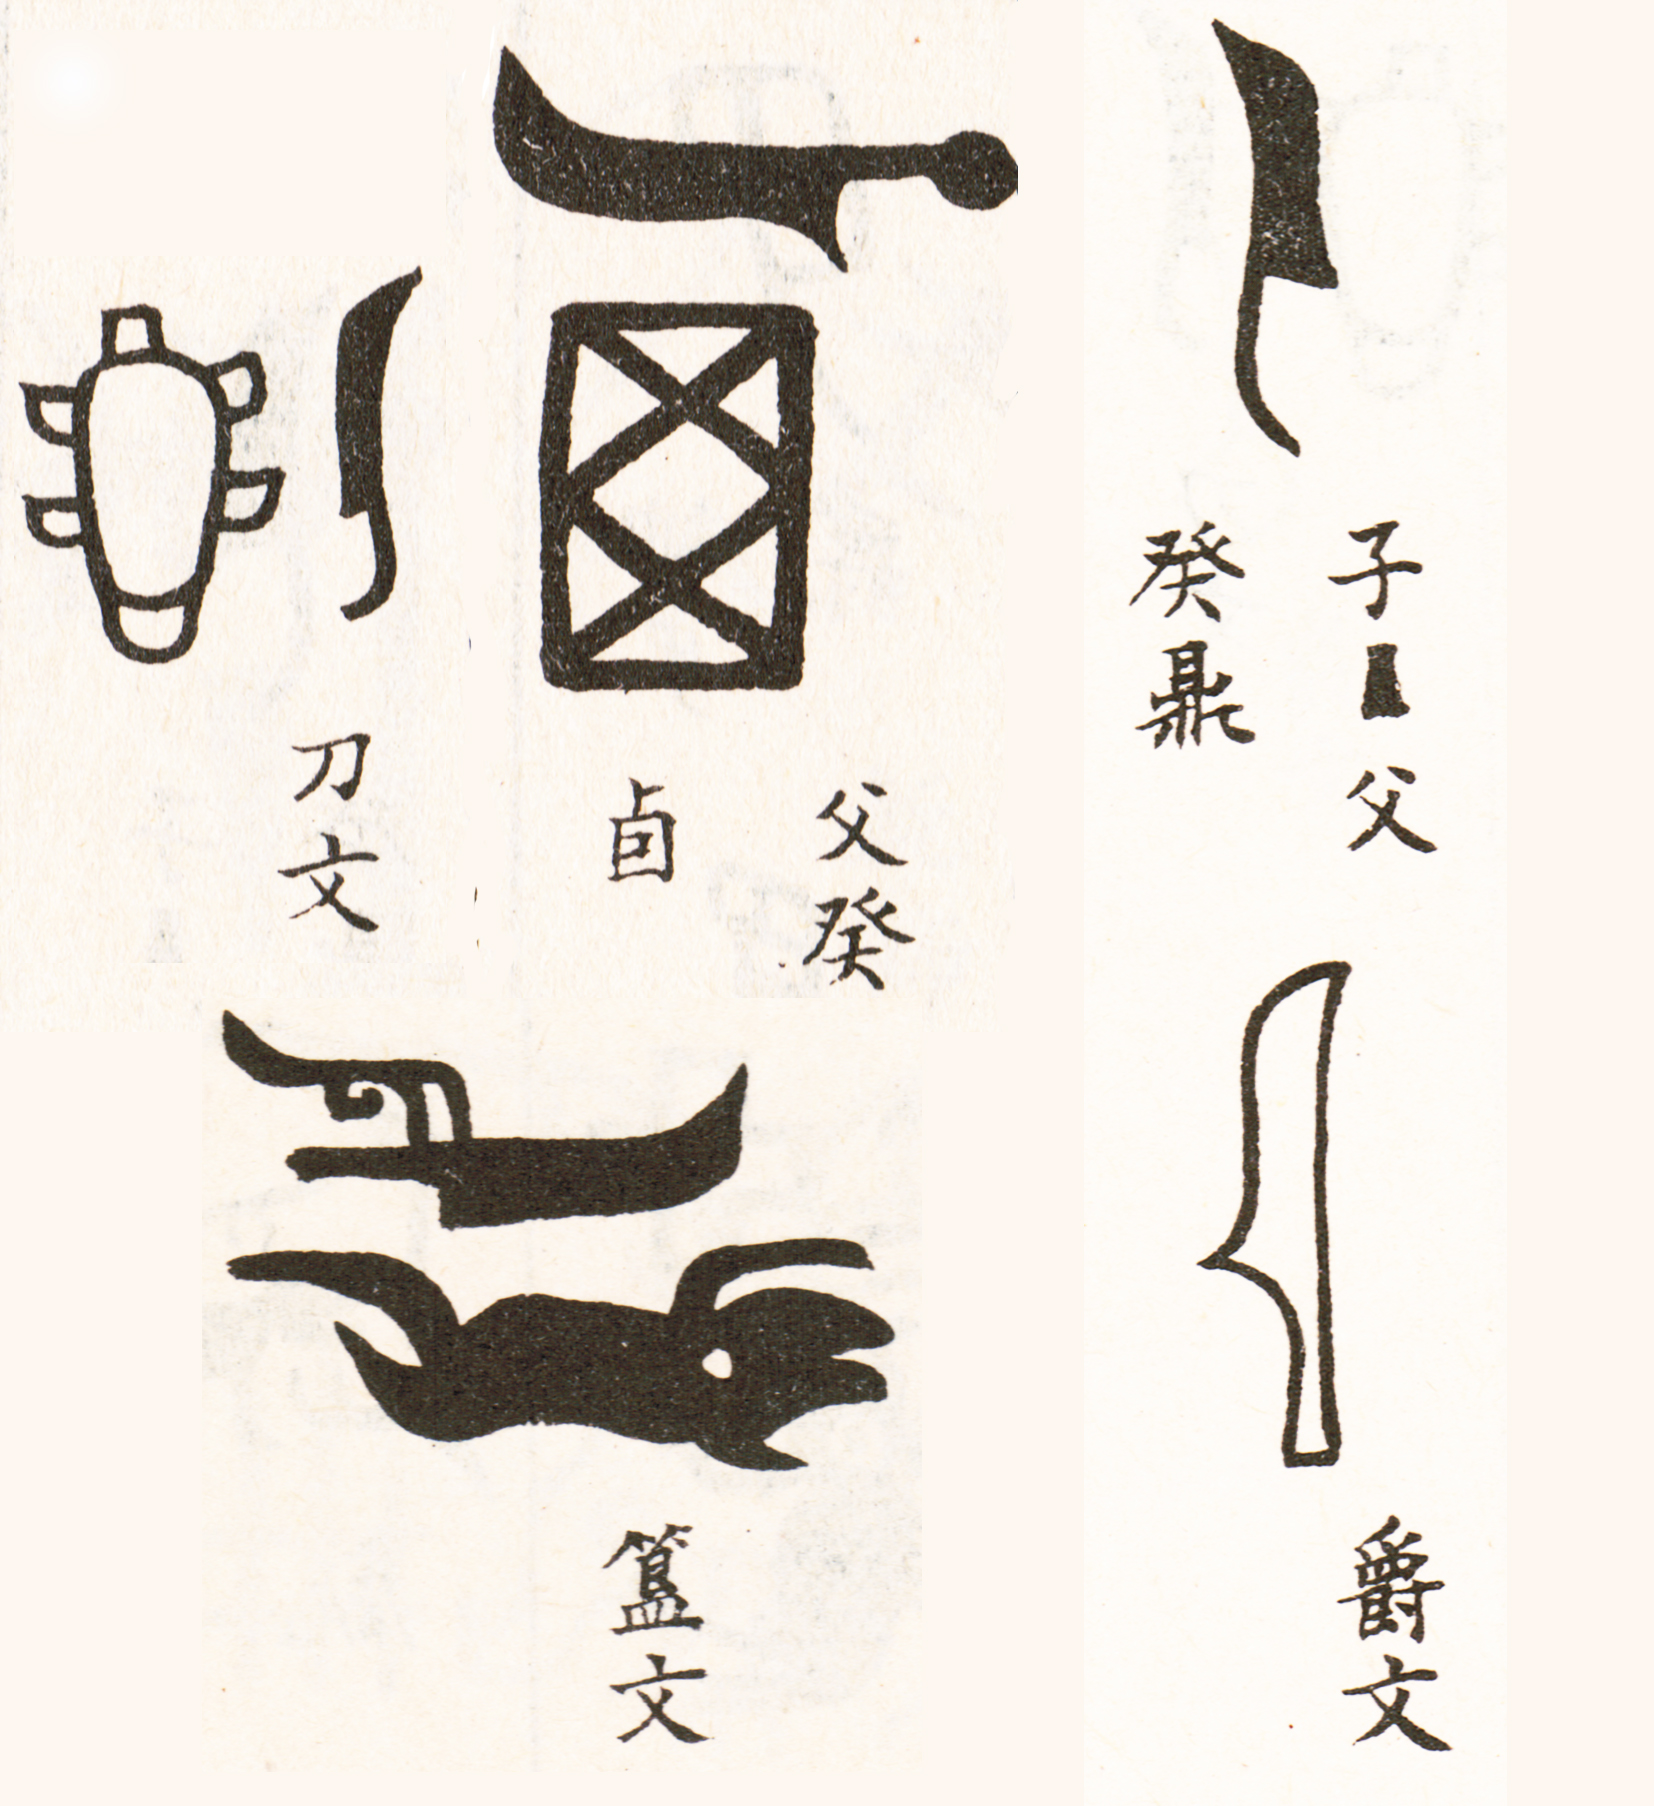 子 父
癸鼎
父癸
卣
刀文
爵文
簋文